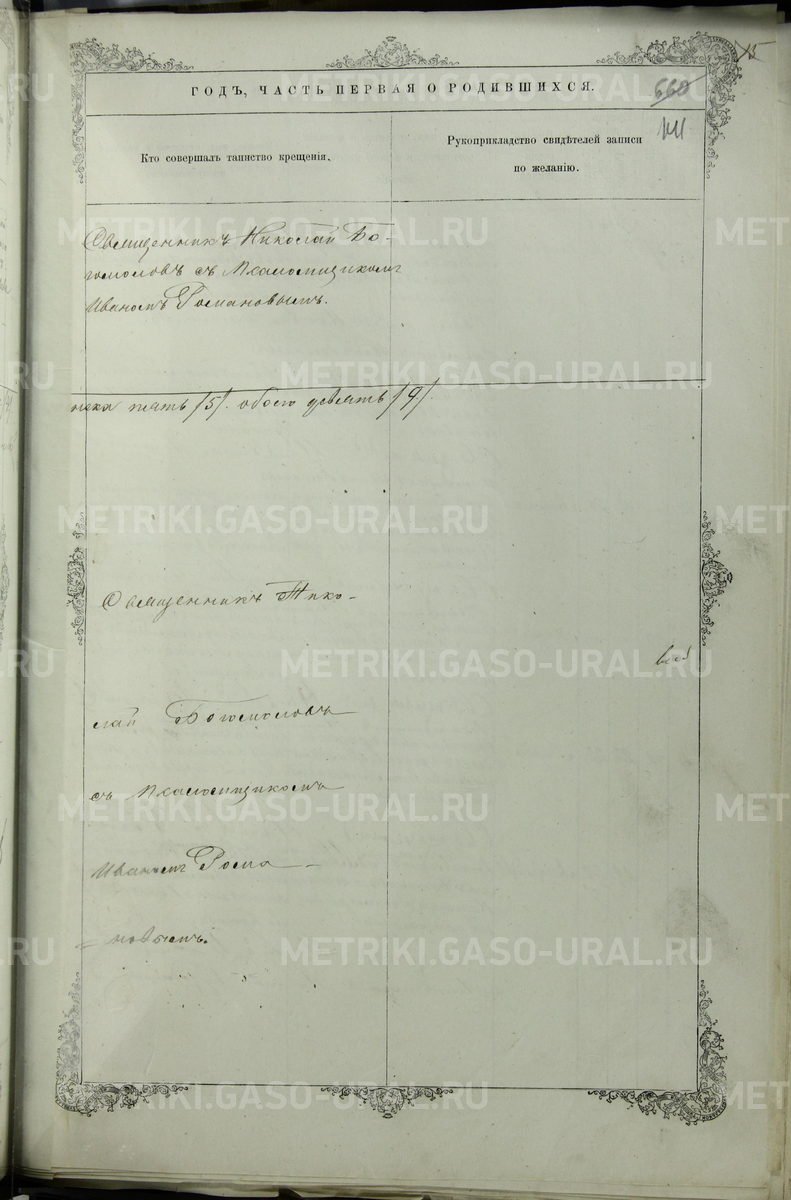 15
ГОДЪ, ЧАСТЬ ПЕРВАЯ О РОДИВШИХСЯ.
660
Кто совершалъ таинство крещенія.
Рукоприкладство свидѣтелей записи
по желанію.
Священникъ Николай Бо-
гомоловъ съ Псаломщикомъ
Иваномъ Романовымъ.
пять /5/. обоего девять /9/.
Священникъ Нико-
лай Богомоловъ
съ Псаломщикомъ
Иваномъ Рома-
новымъ.
METRIKI.GASO-URAL.RU